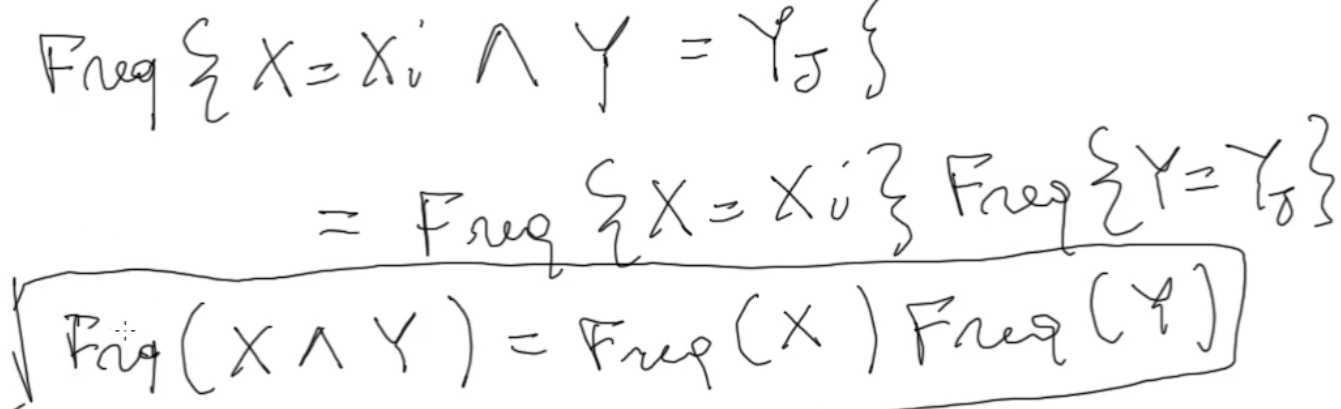 Freq { X = Xi ∧ Y = YJ }
= Freq { X = Xi } Freq { Y = YJ }
Freq ( X ∧ Y ) = Freq ( X ) Freq ( Y )